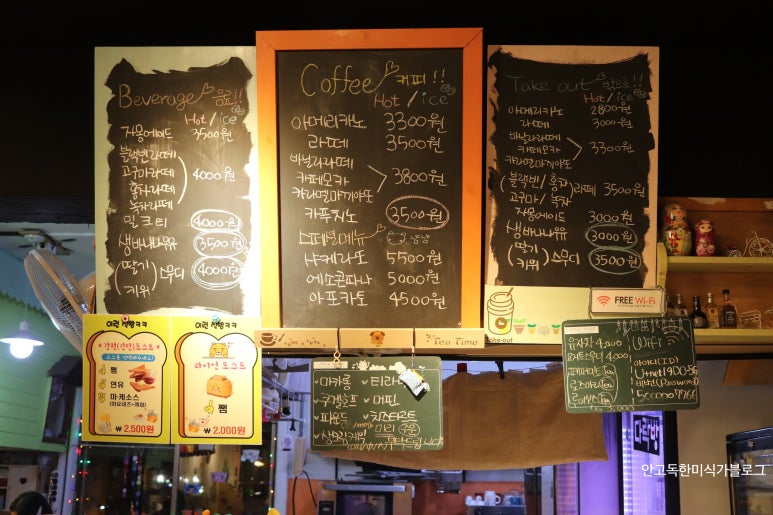 Beverage 음료!!
Hot / ice
자몽에이드 3500원
블랙빈라떼
고구마라떼
홍차라떼
녹차라떼
4000원
밀크티 4000원
생바나나우유 3500원
(딸기/키위) 스무디 4000원
Coffee 커피!!
Hot / ice
아메리카노 3300원
라떼 3500원
바닐라라떼
카페모카
카라멜마끼아또
3800원
카푸치노 3500원
스페셜메뉴
샤케라또 5500원
에소콘파냐 5000원
아포카토 4500원
Take out
Hot / ice
아메리카노 2800원
라떼 3000원
바닐라라떼
카페모카
카라멜마끼아또
3300원
(블랙빈/홍차/고구마/녹차) 라떼 3500원
자몽에이드 3000원
생바나나우유 3000원
(딸기/키위) 스무디 3500원
FREE Wi-Fi
Tea Time
Take-out
간편(간단)토스트
쨈
연유
마케소스
(마요네즈+케찹)
₩ 2,500원
라이언 토스트
쨈
₩ 2,000원
마카롱
머핀
파운드 치즈타르트
미리 주문
Wifi
아이디(ID)
(Password)
안고독한미식가블로그